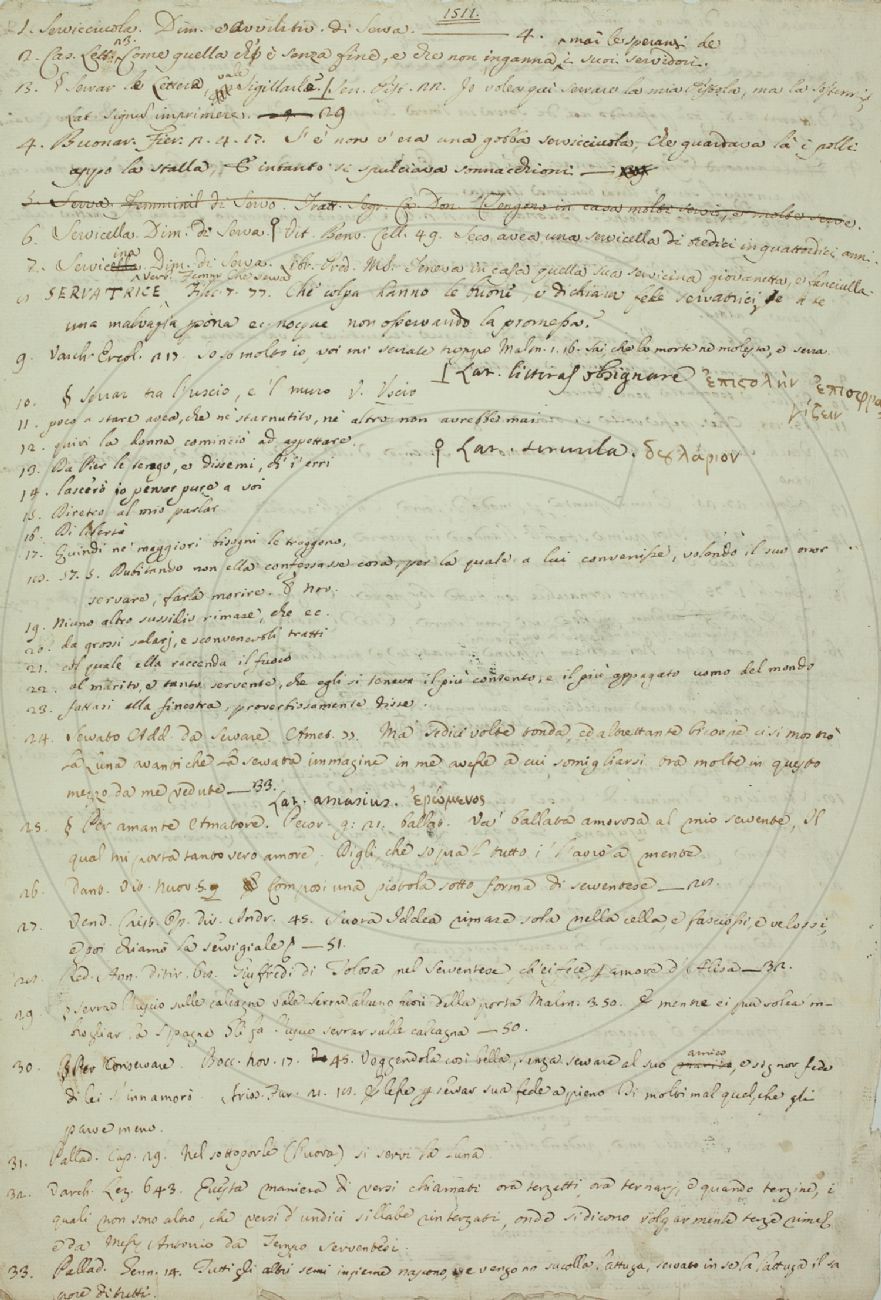 1511.
1. Servicciuola. Dim. e avvilitiv. di Serva. — 4.
mai le speranze de
2. Cas. Lett. Come quella che è senza fine, e che non inganna i suoi servidori.
13. § Serrar le Lettere, vale Sigillarle. Sen. Pist. Io volea qui serrare la mia Pistola, ma la sosterrò
Lat. signum imprimere. — 29
4. Buonar. Fier. 2. 4. 17. S'e' non v'era una gobba servicciuola, che guardava là i polli
appo la stalla, E intanto si spulciava sonnacchioni —
5. Serva Femminil di Servo. Tratt. Segr. Cos. Don. Tengono in casa molti servi, e molte serve.
6. Servicella. Dim. di Serva. Vit. Benv. Cell. 49. Seco avea una servicella di tredici in quattordici anni.
7. Servicina Dim. di Serva. Libr. Pred. MS. Teneva in casa quella sua servicina giovanetta, e fanciulla
Verb. Femm. Che serva
8. SERVATRICE Filoc. 7. 77. Che colpa hanno le buone, e di chiara fede servatrici, se a te
una malvagia pona e nocque non osservando la promessa?
9. Varch. Ercol. 217. so so molto io, voi mi serrate troppo Malm. 1. 16. Sai che la morte ne molesta, e serra
Lat. litteras obsignare ἐπιστολὴν ἐπισφρα
γίζειν
10. § Serrar tra l'uscio, e 'l muro V. Uscio
11. poco a stare avea, che nè starnutito, nè altro non avrebbe mai
12. quivi la donna cominciò ad aspettare.
Lat. servula. δουλάριον
13. Da Pier le tengo, e dissemi, ch'i' erri
14. lascerò io pensar pure a voi
15. Diretro al mio parlar
16. Di libertà
17. Quindi ne' maggiori bisogni le traggono,
18. 17. 5. Dubitando non ella confessasse cosa, per la quale a lui convenisse, volendo il suo onor
servare, farla morire. § Nov.
19. Niuno altro sussidio rimase, che ec.
20. da grossi salarj, e sconvenevoli tratti
21. col quale ella raccenda il fuoco
22. al marito, e tanto servente, che egli si teneva il più contento, e il più appagato uomo del mondo
23. fattasi alla finestra, proverbiosamente disse.
24. Servato Add. da Servare. Amet. 77. Ma sedici volte tonda, ed altrettante bicorne ci si mostrò
la Luna avanti che la servata immagine in me avesse a cui somigliarsi ora molte in questo
mezzo da me vedute — 33.
Lat. amasius. ἐρώμενος
25. § Per amante Amadore. Pecor. g. 21. ballat. Va' ballata amorosa al mio servente, Il
qual mi porta tanto vero amore, Digli, che sopra 'l tutto i' l'avrò a mente
26. Dant. Vit. Nuov. 5. Composi una pistola sotto forma di serventese — 20.
27. Vend. Crist. Op. div. Andr. 45. Suora Iddea rimase sola nella cella, e fasciossi, e velossi,
e poi chiamò la servigiale — 51.
28. Red. Ann. Ditir. 60. Giuffredi di Tolosa nel serventese, ch'ei fece, p amore d'Alisa — 32.
29. § serrar l'uscio sulle calcagna vale Serrar alcuno fuori della porta Malm. 3. 50. E mentre ei pur volea in-
vogliar la Spagna Se fa l'uscio serrar sulle calcagna — 50.
30. § Per Conservare. Bocc. nov. 17. 45. Veggendola così bella, senza servare al suo amico, e signor fede
di lei s'innamorò. Arios. Fur. 21. 10. E lesse p servar sua fede a pieno Di molti mal quel, che gli
parve meno.
31. Pallad. Cap. 29. Nel sottoporle (l'uova) si servi la luna.
32. Varch. Lez. 643. Questa maniera di versi chiamati ora terzetti, ora ternarj, e quando terzine, i
quali non sono altro, che versi d'undici sillabe rinterzati, onde si dicono volgarmente terze rime
e da Mess. Antonio da Tempo serventesi.
33. Pallad. Genn. 14. Tutti gli altri semi insieme nascono, e vengono su colla lattuga, servato in se la lattuga il sa
pore di tutti.